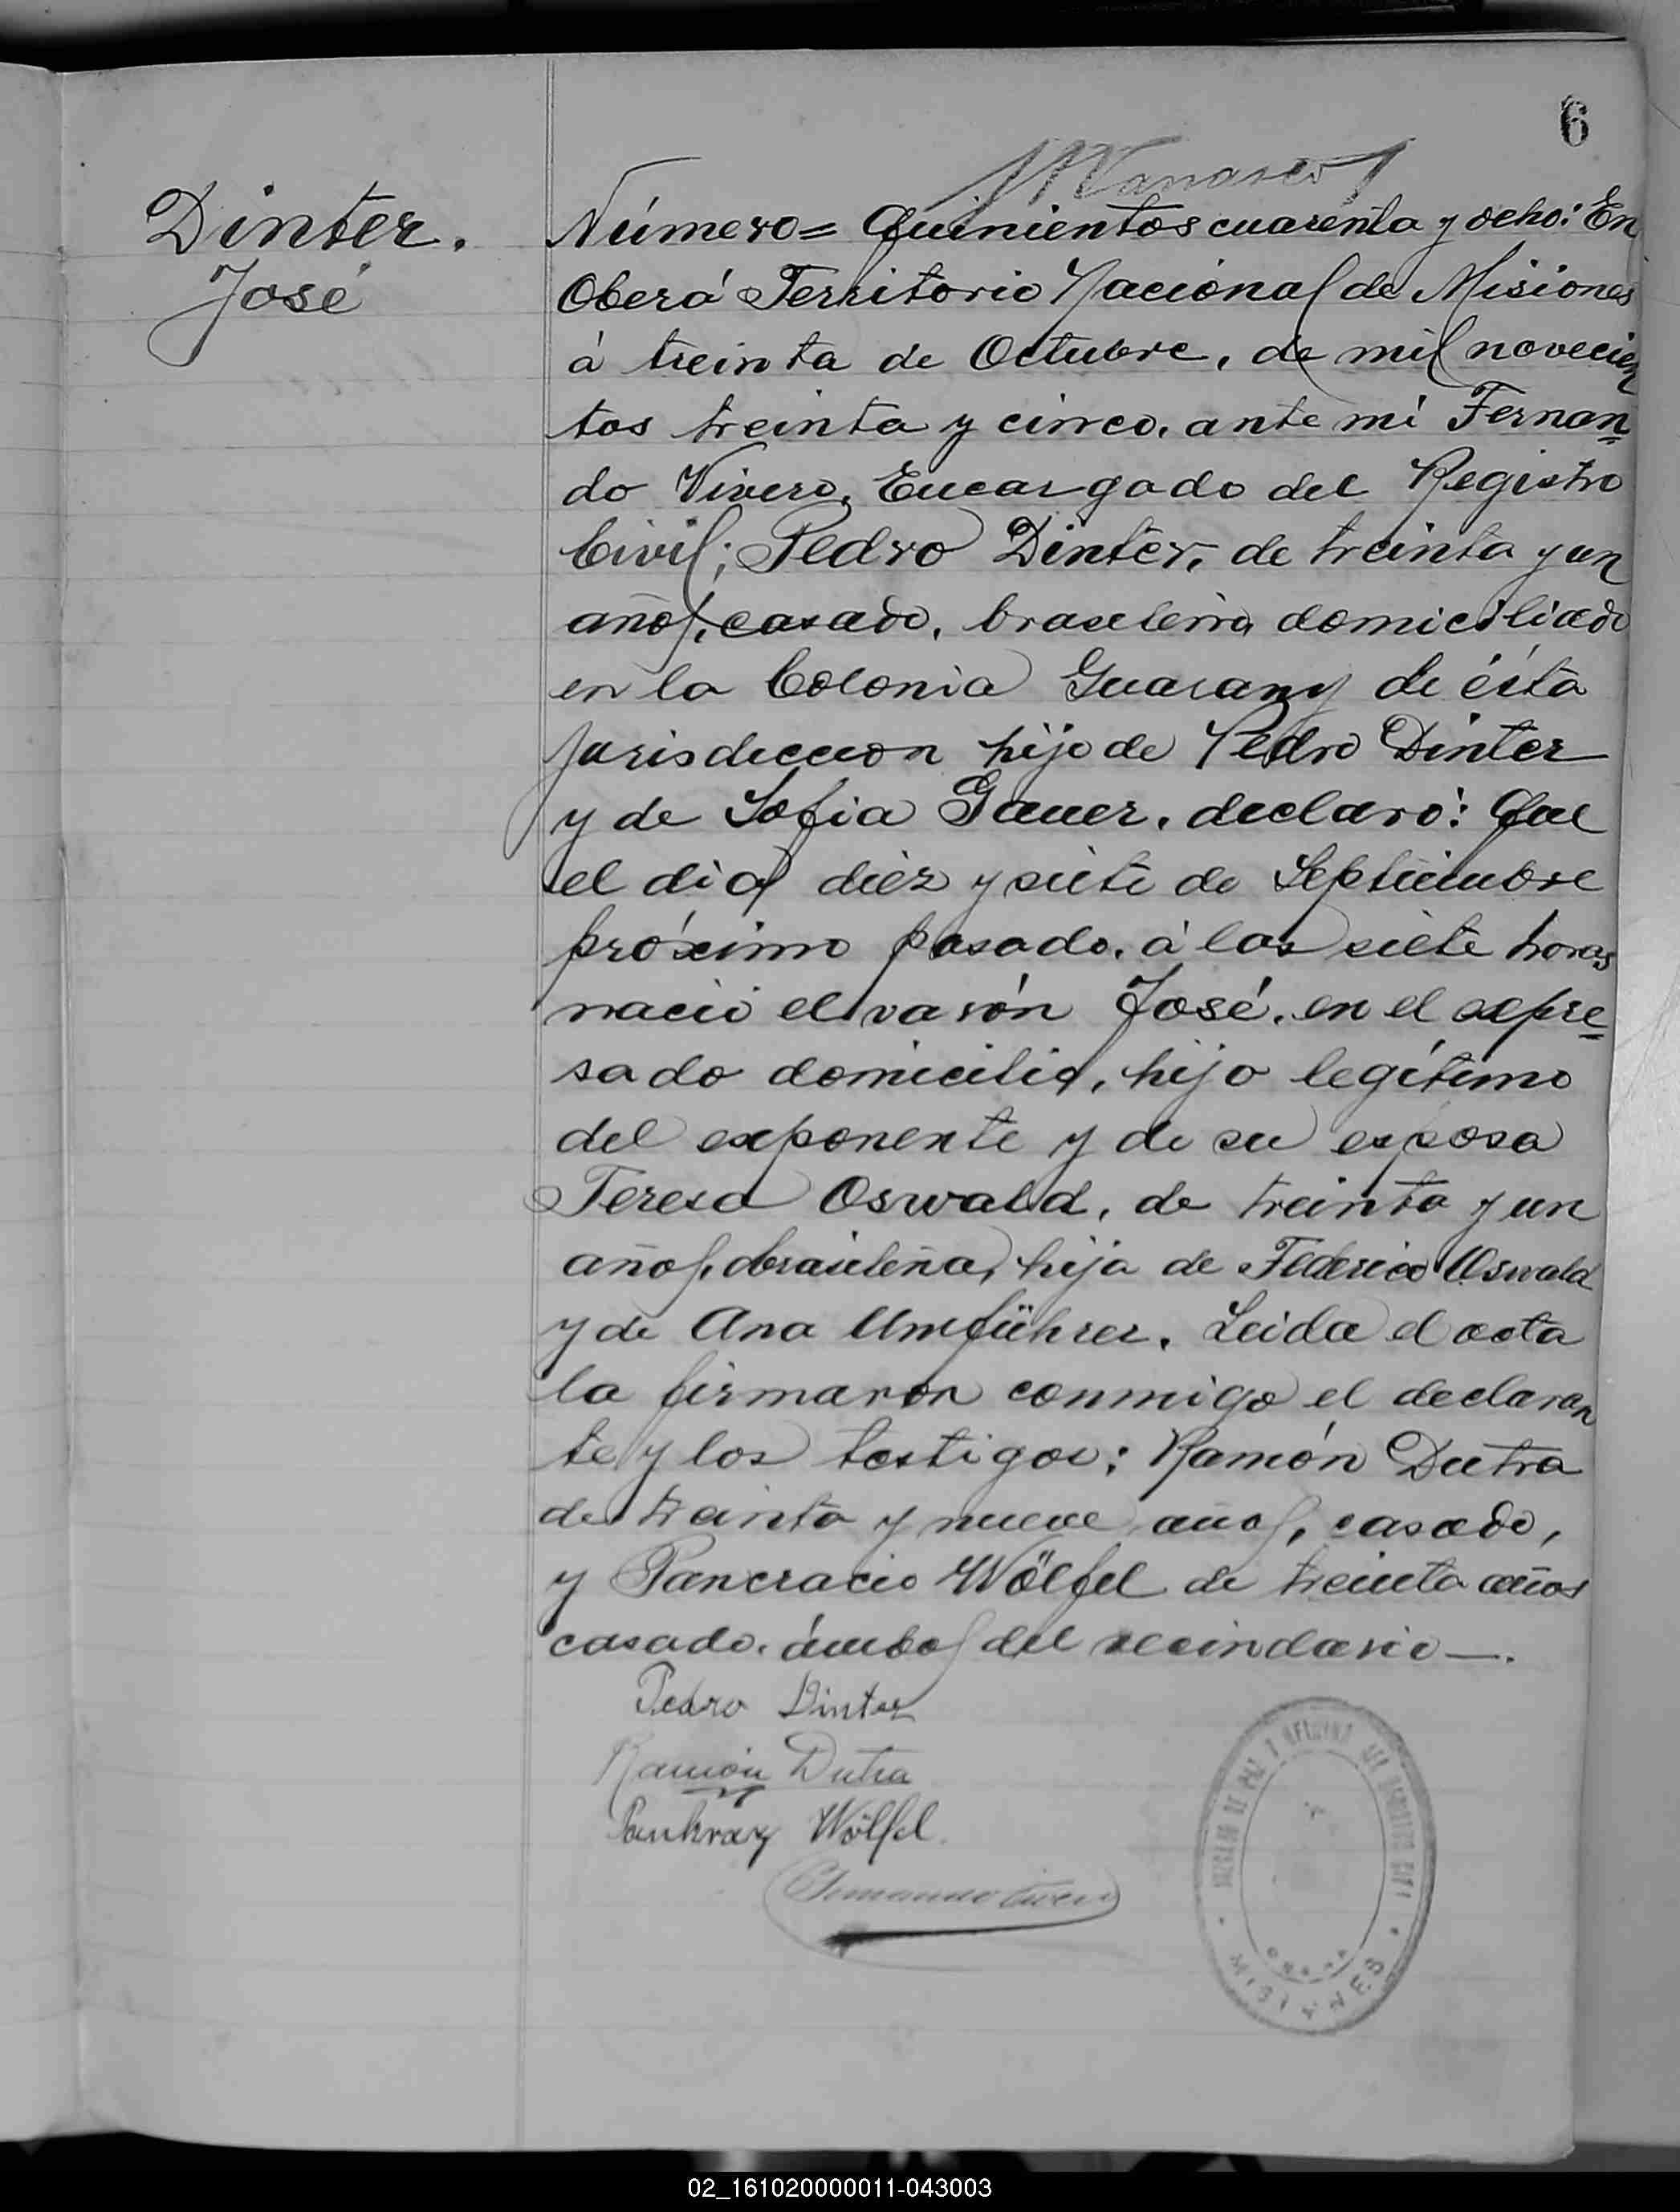 6
Dinter.
José
Número = Quinientos cuarenta y ocho: En
Oberá Territorio Nacional de Misiones
á treinta de Octubre, de mil novecien
tos treinta y cinco, ante mi Fernan=
do Vivero, Encargado del Registro
Civil; Pedro Dinter, de treinta y un
años, casado, brasileiro, domiciliado
en la Colonia Guarany de ésta
jurisdiccion hijo de Pedro Dinter
y de Sofia Gauer, declaró: Que
el dia diez y siete de Septiembre
próximo pasado, á las siete horas
nació el varón José, en el expre=
sado domicilio, hijo legítimo
del exponente y de su esposa
Teresa Oswald, de treinta y un
años, brasileña, hija de Federico Oswald
y de Ana Umführer. Leida el acta
la firmaron conmigo el declaran
te y los testigos: Ramón Dutra
de treinta y nueve años, casado,
y Pancracio Wölfel de treinta años
casado, ámbos del vecindario —.
Pedro Dinter
Ramón Dutra
Pankraz Wölfel
Fernando Vivero
JUZGADO DE PAZ Y OFICINA DEL REGISTRO CIVIL
OBERA
MISIONES
02_161020000011-043003